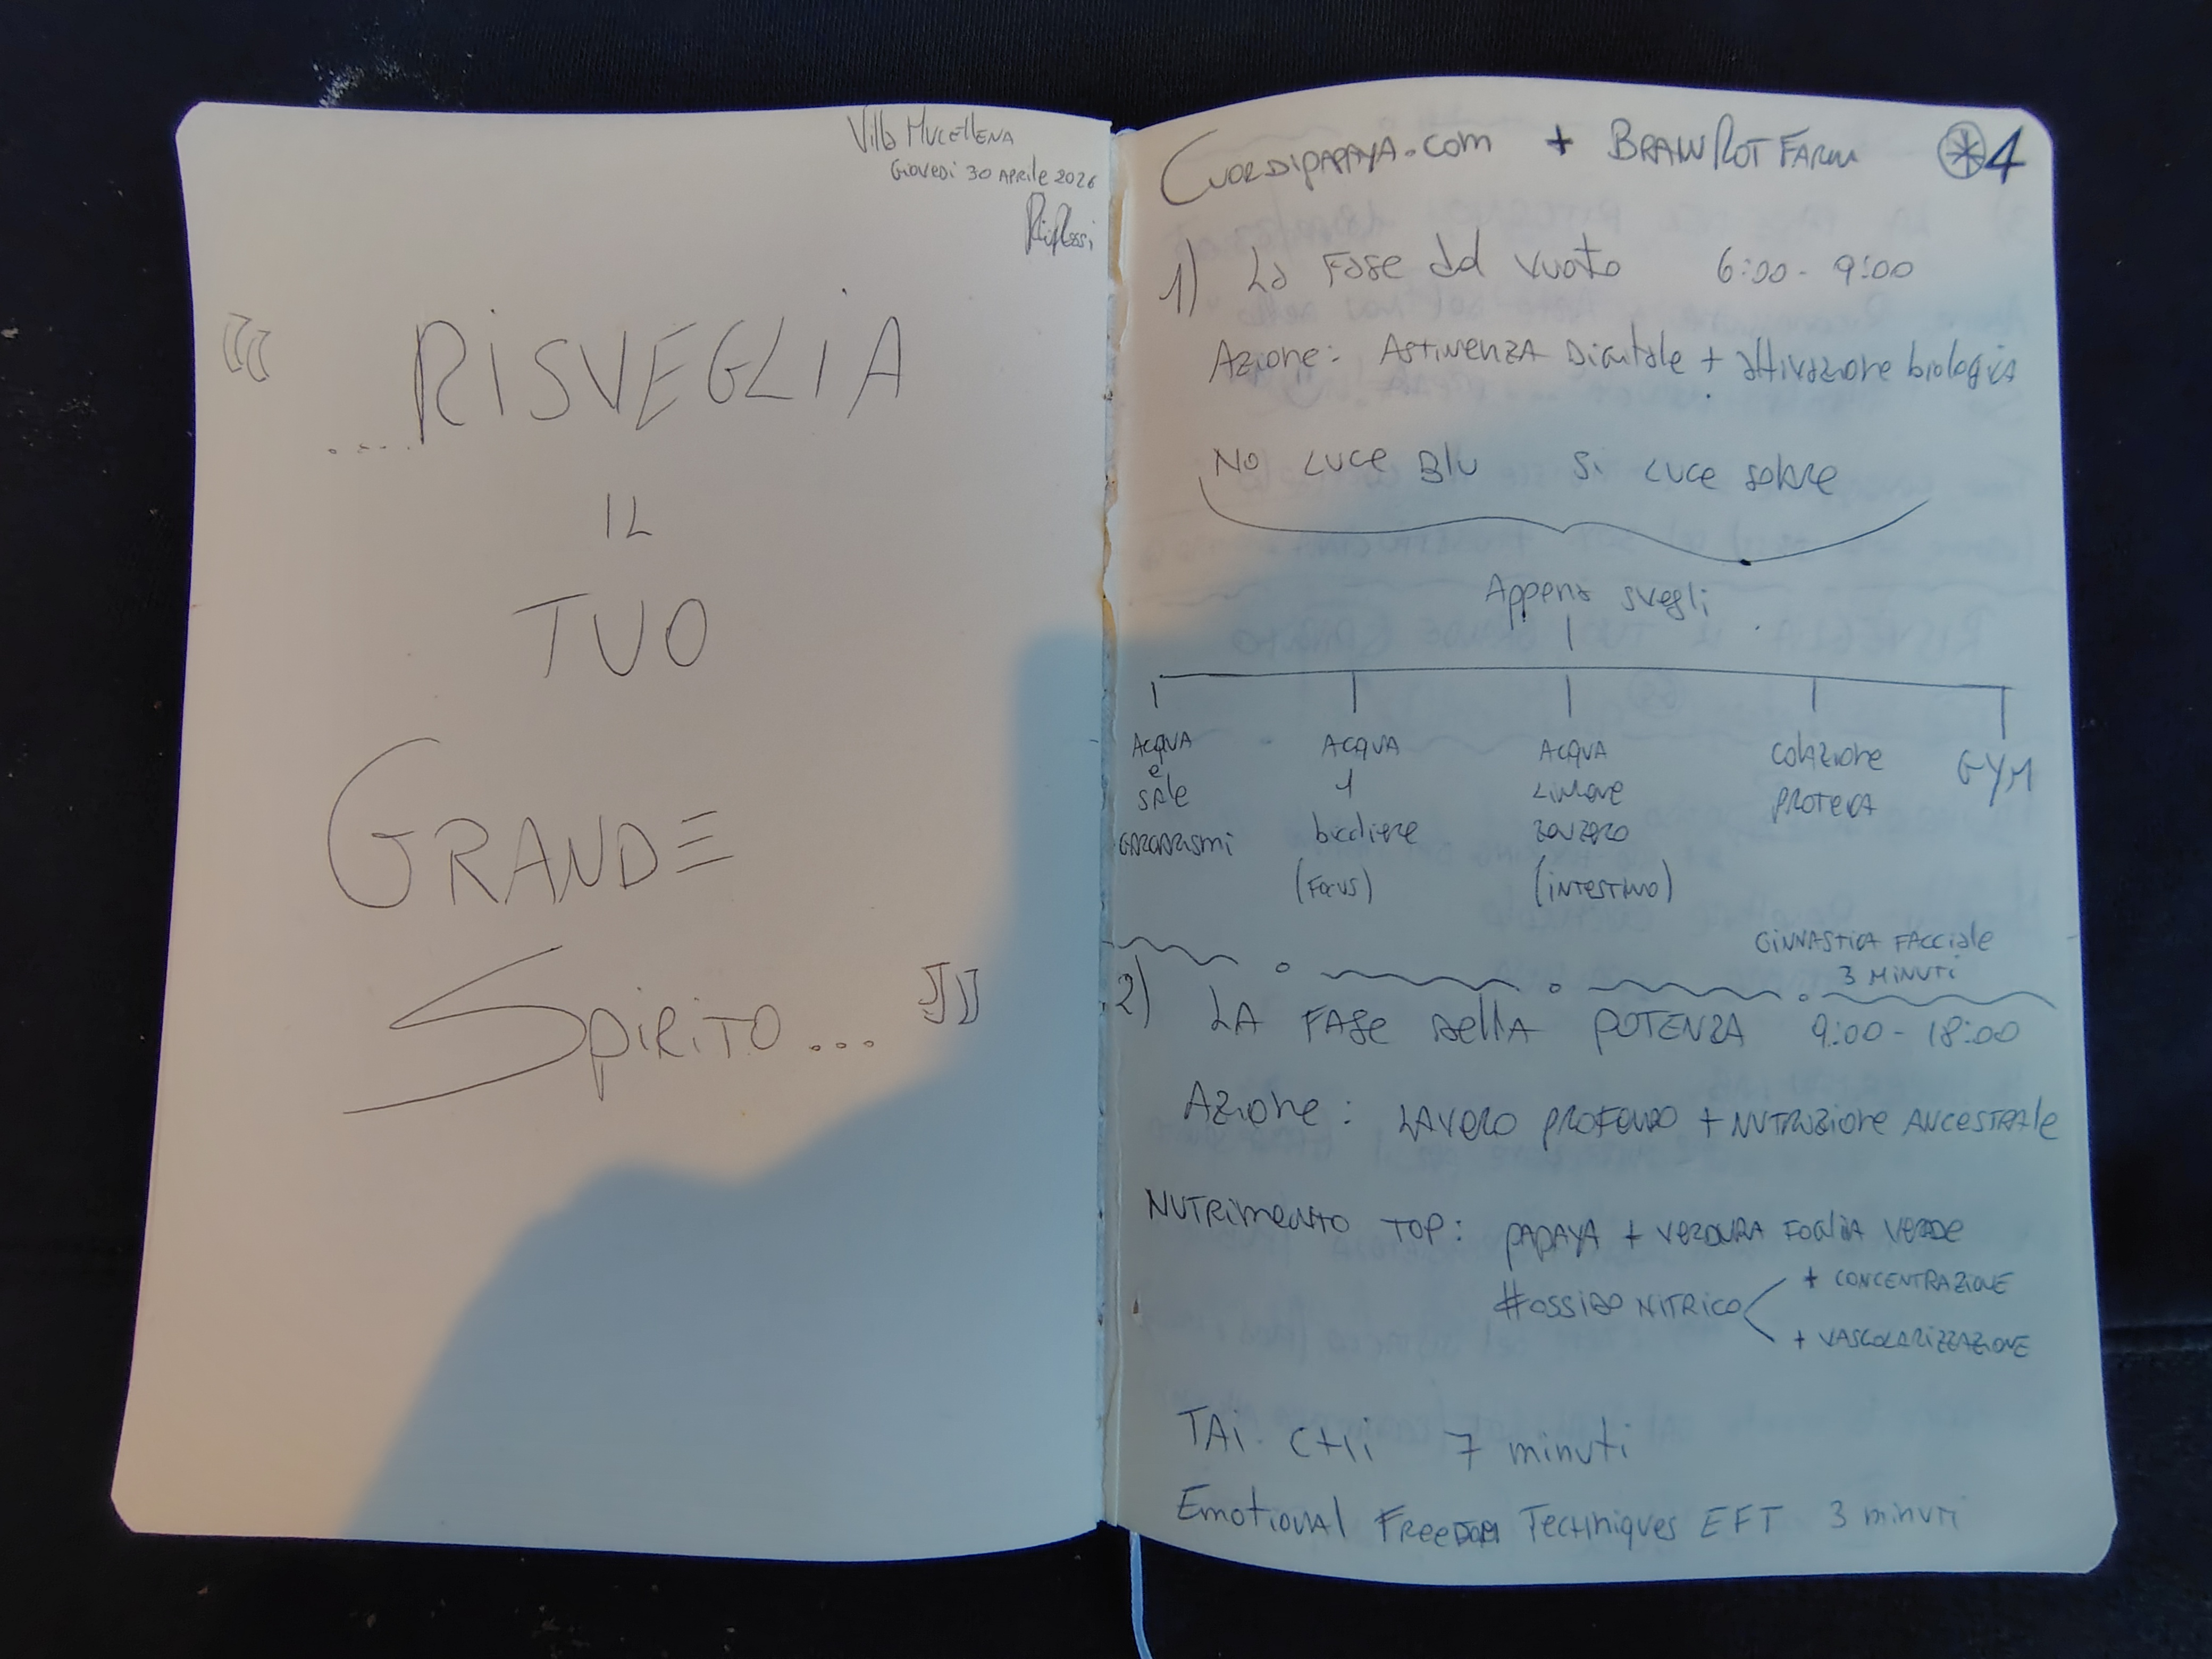 Villa Mucellena
Giovedi 30 Aprile 2026
“ ....RISVEGLIA
IL
TUO
GRANDE
SPIRITO... ”
Cuordipapaya.com + BRAINROT FARM ⊛4
1) La Fase del vuoto 6:00 - 9:00
Azione: Astinenza Digitale + attivazione biologica
No luce Blu Si luce solare
Appena svegli
Acqua e sale gargarismi
Acqua 1 bicchiere (Focus)
Acqua limone zenzero (intestino)
Colazione proteica
GYM
Ginnastica facciale
3 minuti
2) La Fase della Potenza 9:00 - 18:00
Azione: Lavoro profondo + Nutrizione Ancestrale
Nutrimento top: papaya + verdura foglia verde
#ossido nitrico
+ concentrazione
+ vascolarizzazione
Tai Chi 7 minuti
Emotional Freedom Techniques EFT 3 minuti